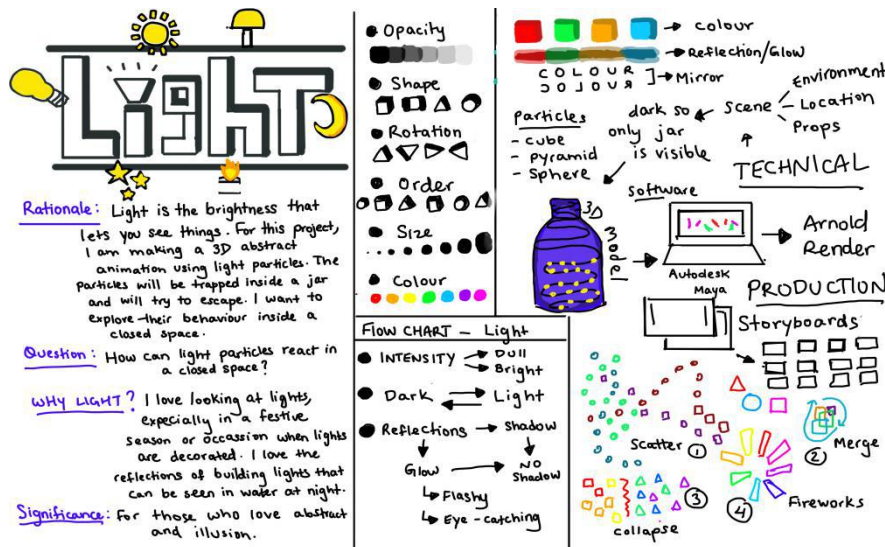 LigHT
Rationale: Light is the brightness that
lets you see things. For this project,
I am making a 3D abstract
animation using light particles. The
particles will be trapped inside a jar
and will try to escape. I want to
explore their behaviour inside a
closed space.
Question: How can light particles react in
a closed space?
WHY LIGHT? I love looking at lights,
expecially in a festive
season or occassion when lights
are decorated. I love the
reflections of building lights that
can be seen in water at night.
Significance: For those who love abstract
and illusion.
Opacity
Shape
Rotation
Order
Size
Colour
FLOW CHART - Light
INTENSITY
Dull
Bright
Dark
Light
Reflections
Shadow
Glow
NO
Shadow
Flashy
Eye-catching
Colour
Reflection/Glow
COLOUR
COLOUR
Mirror
Particles
- Cube
- Pyramid
- Sphere
dark so
only jar
is visible
Scene
Environment
Location
Props
TECHNICAL
Software
3D
Model
Autodesk
Maya
Arnold
Render
PRODUCTION
Storyboards
Scatter 1
2 Merge
3
Collapse
4
Fireworks